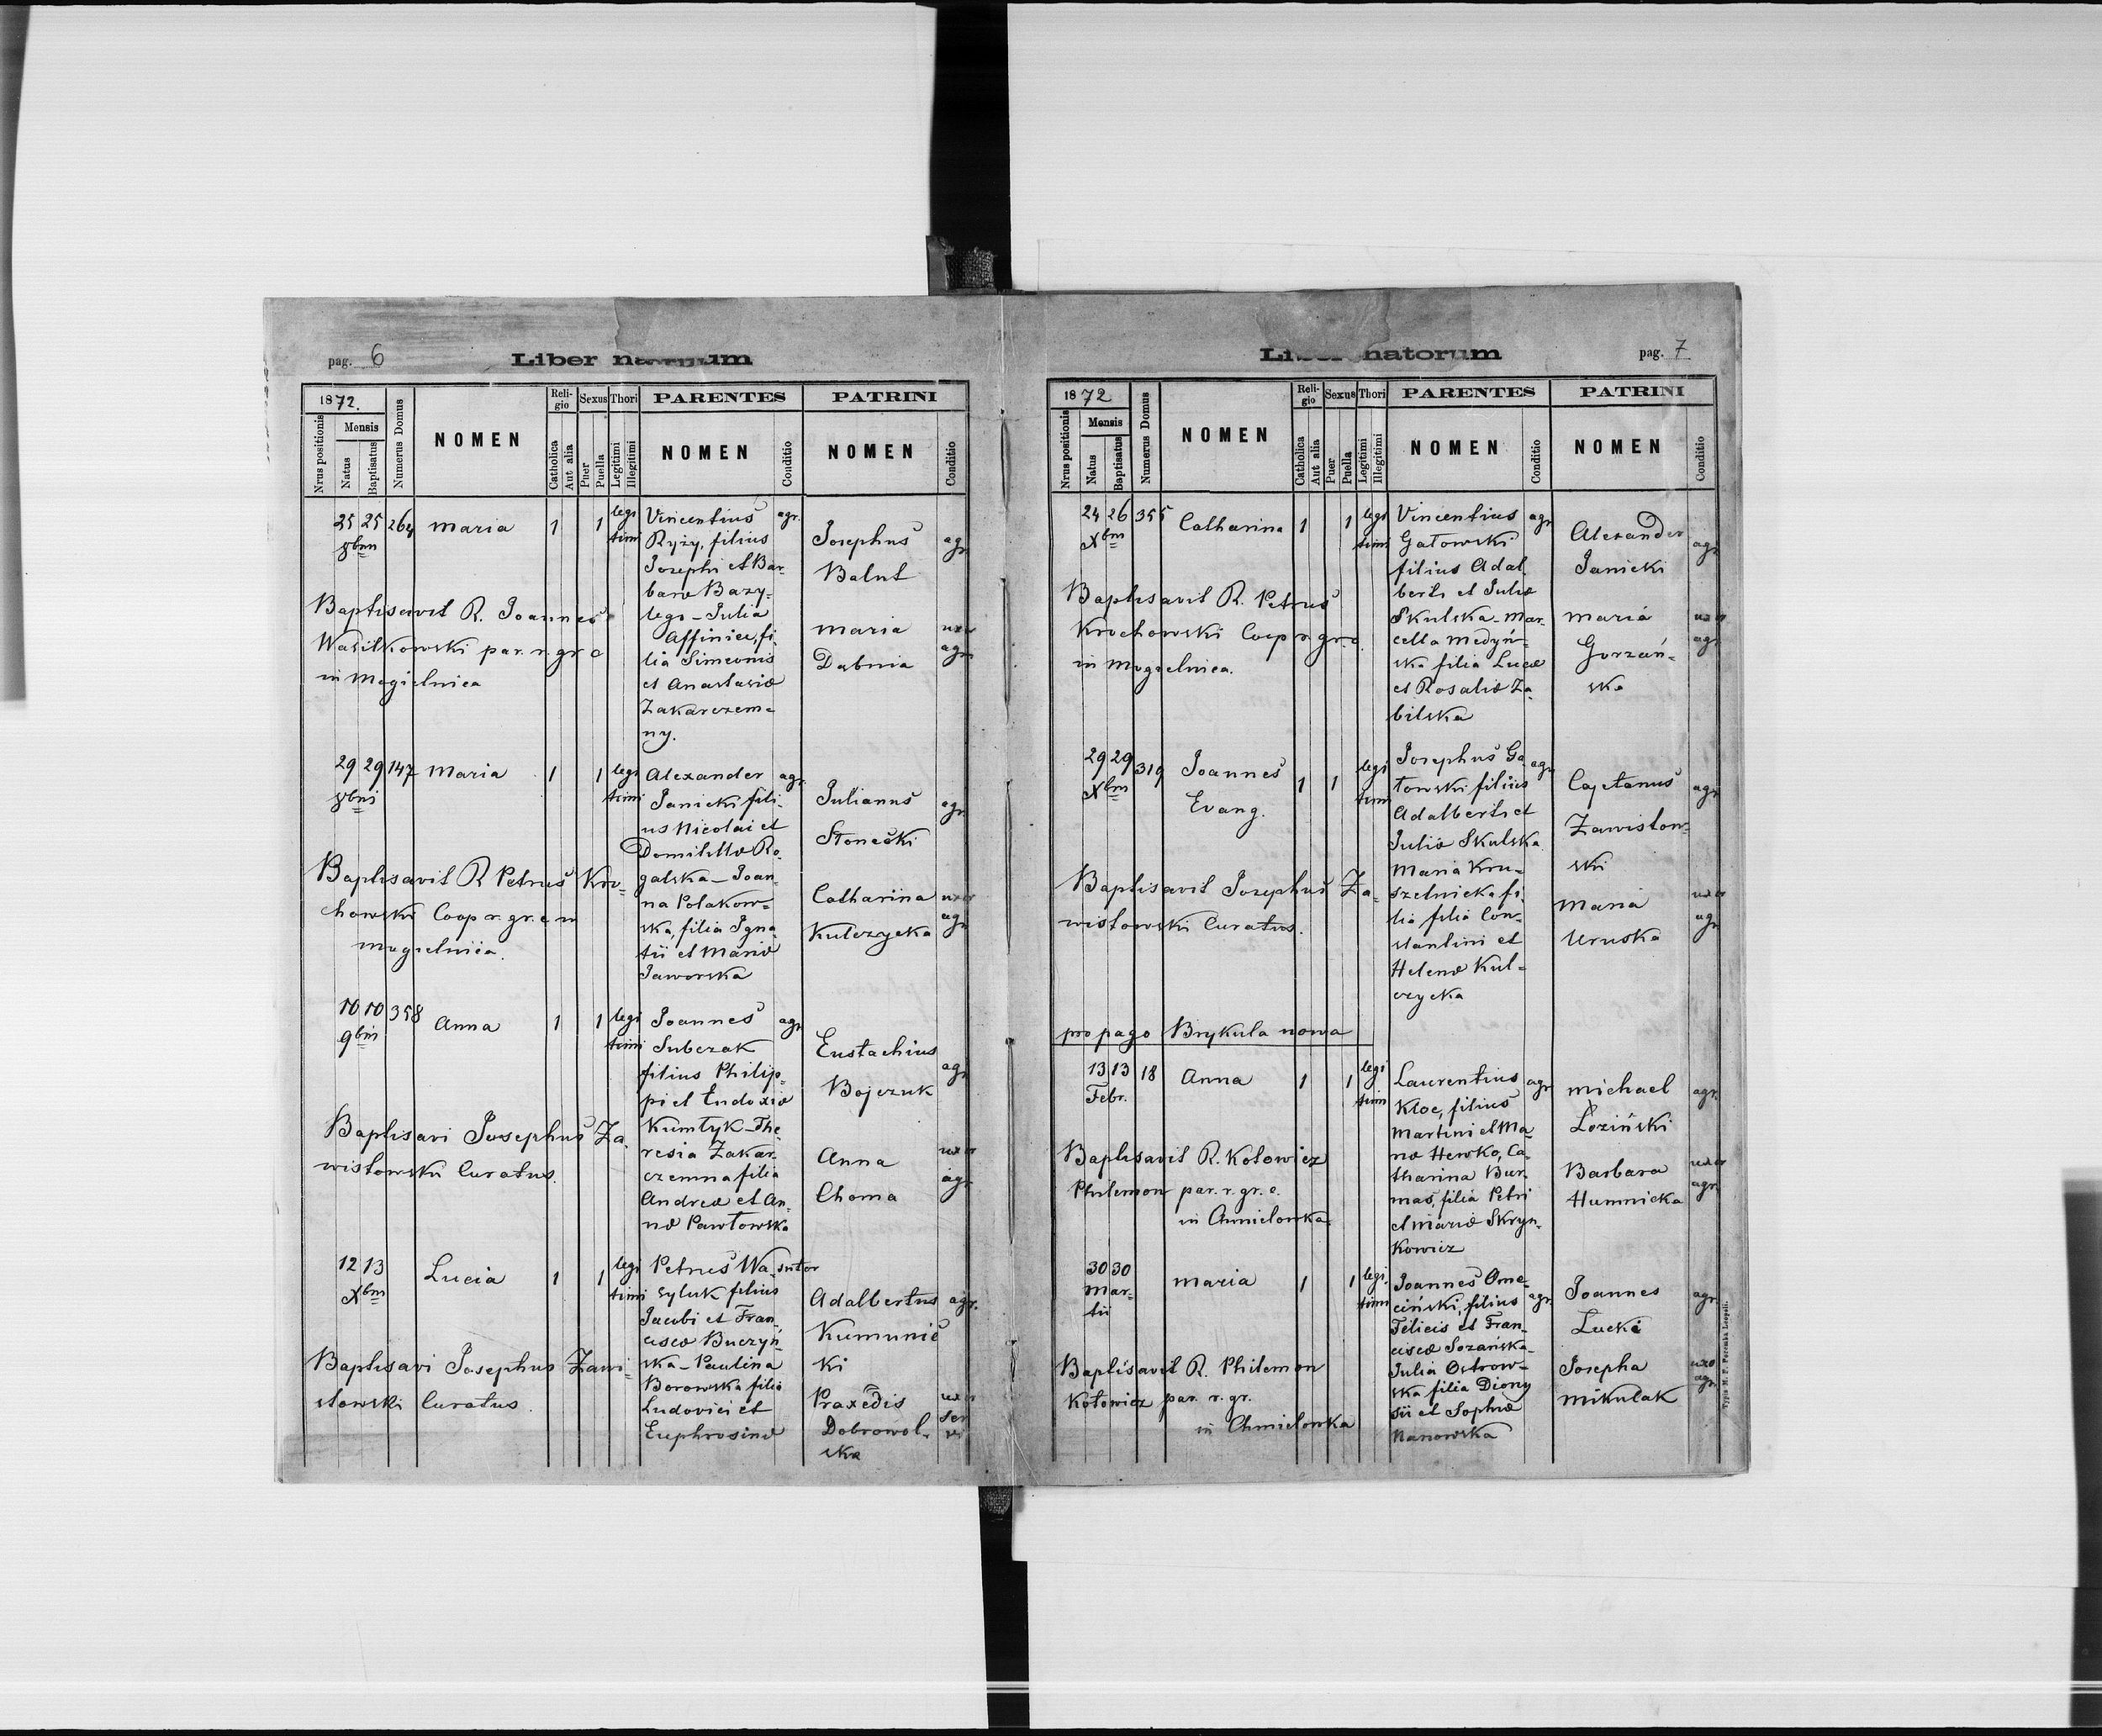 pag. 6
Liber natorum
1872.
Nrus positionis
Mensis
Natus
Baptisatus
Numerus Domus
NOMEN
Reli-
gio
Catholica
Aut alia
Sexus
Puer
Puella
Thori
Legitimi
Illegitimi
PARENTES
NOMEN
Conditio
PATRINI
NOMEN
Conditio
25 25 264 Maria 1 1 legi
timi
8bm
Vincentius agr.
Ryży, filius
Josephi et Bar-
barae Bazy-
lego - Julia
Affinice, fi-
lia Simeonis
et Anastasiae
Zakarczem-
ny.
Josephus agr.
Balut
Maria uxor
Dabnia agr.
Baptisavit R. Joannes
Wasilkowski par. r. gr. c
in Mogielnica
29 29 147 Maria 1 1 legi
timi
8bm
Alexander agr.
Janicki fili-
us Nicolai et
Domitillae Ro-
galska - Joan-
na Polakow-
ska, filia Igna-
tii et Mariae
Jaworska
Julianus agr.
Słonecki
Catharina uxor
Kulczycka agr.
Baptisavit R Petrus Kro-
chowski Coop r. gr. c in
Mogielnica.
10 10 358 Anna 1 1 legi
timi
9bm
Joannes agr.
Subczak
filius Philip-
pi et Eudoxiae
Kumłyk - The-
resia Zakar-
czemna filia
Andreae et An-
nae Pawłowska
Eustachius agr.
Bojczuk
Anna uxor
Choma agr.
Baptisavi Josephus Za-
wisłowski Curatus.
12 13 Lucia 1 1 legi
timi
Xbm
Petrus Wa- sutor
syluk filius
Jacobi et Fran-
ciscae Buczyń-
ska - Paulina
Borowska filia
Ludovici et
Euphrosinae
Adalbertus agr.
Kumunic
ki
Praxedis uxor
Dobrowol- ser
ska vi
Baptisavi Josephus Zawi-
słowski Curatus.
pag. 7
Liber natorum
1872
Nrus positionis
Mensis
Natus
Baptisatus
Numerus Domus
NOMEN
Reli-
gio
Catholica
Aut alia
Sexus
Puer
Puella
Thori
Legitimi
Illegitimi
PARENTES
NOMEN
Conditio
PATRINI
NOMEN
Conditio
24 26 355 Catharina 1 1 legi
timi
Xbm
Vincentius agr
Gałowski
filius Adal-
berti et Juliae
Skulska - Mar-
cella Medyń-
ska filia Lucae
et Rosaliae Za-
bilska
Alexander agr
Janicki
Maria uxor
Gorzań- agr
ska
Baptisavit R. Petrus
Krochowski Coop r. gr. c.
in Mogielnica.
29 29 319 Joannes 1 1 legi
timi
Xbm Evang.
Josephus Ga- agr
łowski filius
Adalberti et
Juliae Skulska
Maria Kru-
szelnicka fi-
lia filia Con-
stantini et
Helenae Kul-
czycka
Cajetanus agr
Zawistow-
ski
Maria uxor
Uruska agr
Baptisavit Josephus Za-
wisłowski Curatus.
pro pago Brykula nowa
13 13 18 Anna 1 1 legi
timi
Febr.
Laurentius agr
Kloc, filius
Martini et Ma-
riae Hewko, Ca-
tharina Bur-
mas, filia Petri
et Mariae Skryn-
kowicz
Michael agr.
Łoziński
Barbara uxor
Humnicka agr.
Baptisavit R. Kołowicz
Philemon par. r. gr. c.
in Chmielowka
30 30 Maria 1 1 legi.
timi
Mar-
tii
Joannes Ome-
ciński, filius agr
Felicis et Fran-
ciscae Sozańska
Julia Ostrow-
ska filia Diony
sii et Sophiae
Nanowska
Joannes agr.
Lucki
Josepha uxo
Mikulak agr.
Baptisavit R. Philemon
Kołowicz par. r. gr.
in Chmielowka
Typis M. F. Poremba Leopoli.